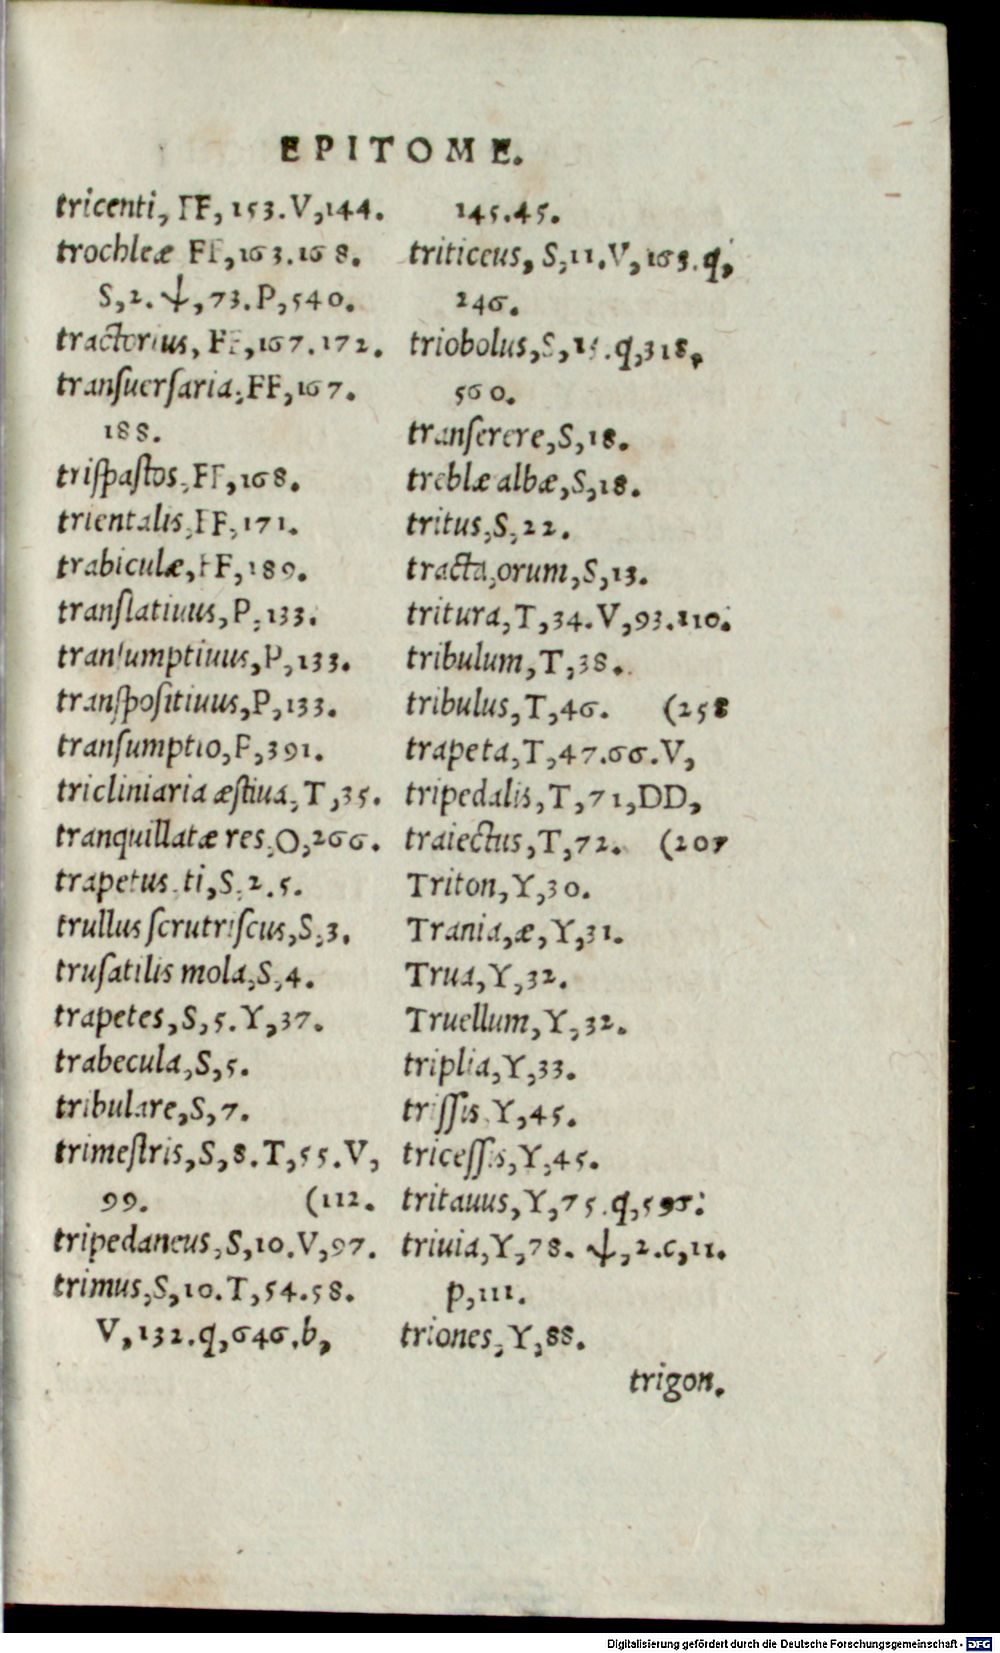 EPITOME.
tricenti, FF, 153. V, 144.
trochleæ FF, 163. 168.
S, 2. ψ, 73. P, 540.
tractorius, FF, 167. 172.
tranſuerſaria, FF, 167.
188.
triſpaſtos, FF, 168.
trientalis, FF, 171.
trabiculæ, FF, 189.
tranſlatiuus, P, 133.
tranſumptiuus, P, 133.
tranſpoſitiuus, P, 133.
tranſumptio, P, 391.
tricliniaria æſtiua, T, 35.
tranquillatæ res, O, 266.
trapetus, ti, S, 2. 5.
trullus ſcrutriſcus, S, 3.
truſatilis mola, S, 4.
trapetes, S, 5. Y, 37.
trabecula, S, 5.
tribulare, S, 7.
trimeſtris, S, 8. T, 55. V,
99. (112.
tripedaneus, S, 10. V, 97.
trimus, S, 10. T, 54. 58.
V, 132. q, 646. b,
145. 45.
triticeus, S, 11. V, 163. q,
246.
triobolus, S, 15. q, 318,
560.
tranſerere, S, 18.
treblæ albæ, S, 18.
tritus, S, 22.
tracta, orum, S, 13.
tritura, T, 34. V, 93. 110.
tribulum, T, 38.
tribulus, T, 46. (258
trapeta, T, 47. 66. V,
tripedalis, T, 71, DD,
traiectus, T, 72. (207
Triton, Y, 30.
Trania, æ, Y, 31.
Trua, Y, 32.
Truellum, Y, 32.
triplia, Y, 33.
triſſis, Y, 45.
triceſſis, Y, 45.
tritauus, Y, 75. q, 595.
triuia, Y, 78. ψ, 2. c, 11.
p, 111.
triones, Y, 88.
trigon.
Digitalisierung gefördert durch die Deutsche Forschungsgemeinschaft - DFG